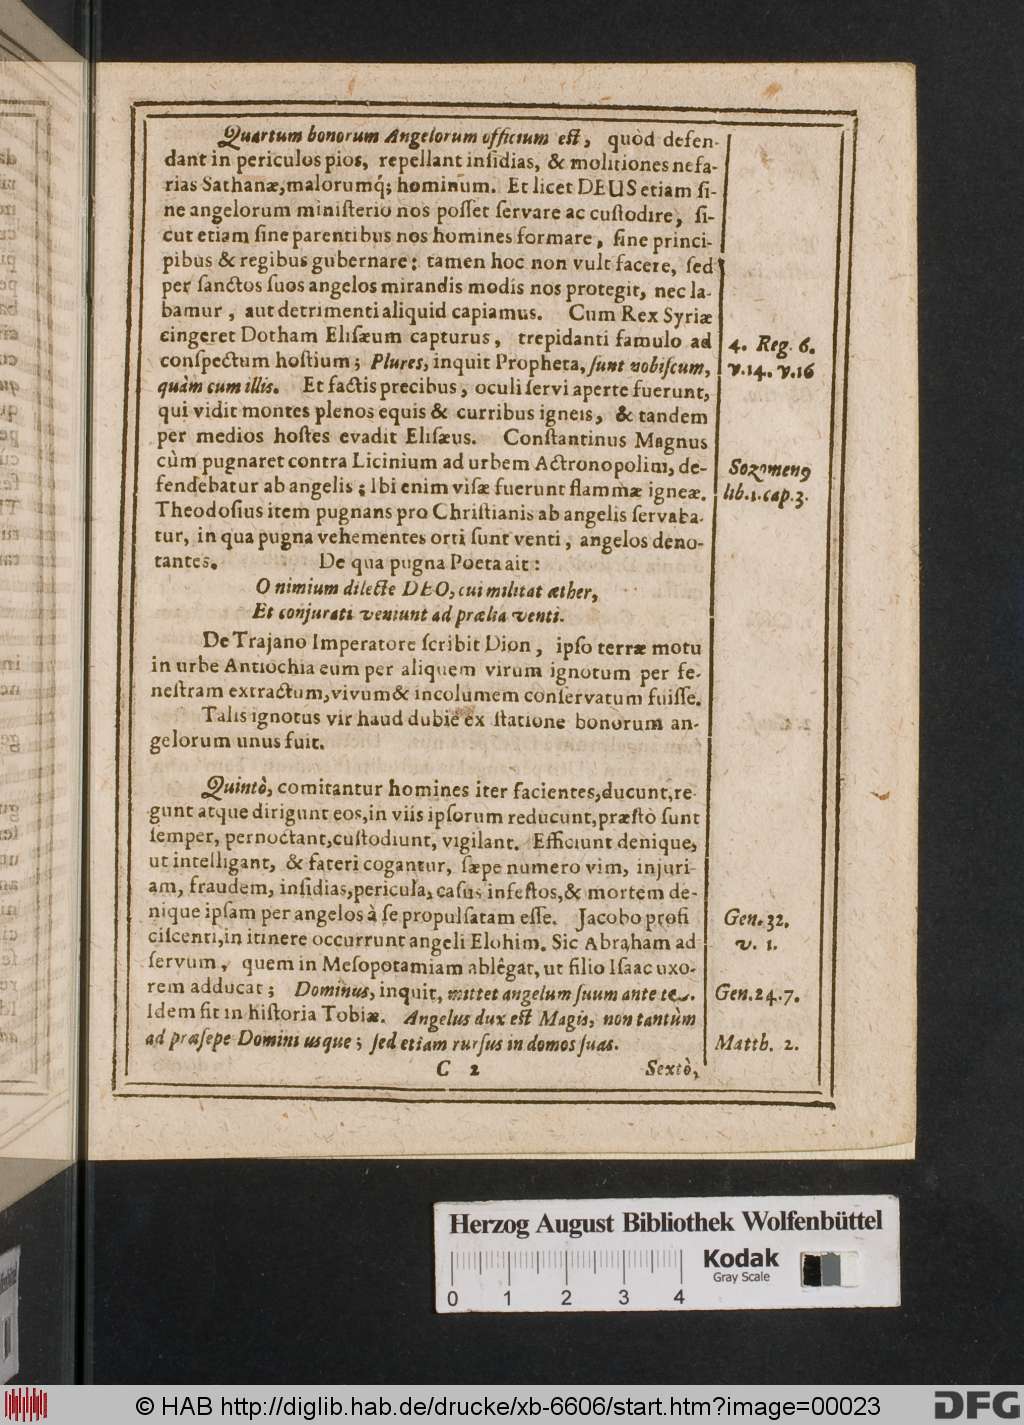 Quartum bonorum Angelorum officium est, quòd defen-
dant in periculos pios, repellant insidias, & molitiones nefa-
rias Sathanæ, malorumq́; hominum. Et licet DEUS etiam si-
ne angelorum ministerio nos posset servare ac custodire, si-
cut etiam sine parentibus nos homines formare, sine princi-
pibus & regibus gubernare: tamen hoc non vult facere, sed
per sanctos suos angelos mirandis modis nos protegit, nec la-
bamur, aut detrimenti aliquid capiamus. Cum Rex Syriæ
cingeret Dotham Elisæum capturus, trepidanti famulo ad
conspectum hostium; Plures, inquit Propheta, sunt nobiscum,
quàm cum illis. Et factis precibus, oculi servi aperte fuerunt,
qui vidit montes plenos equis & curribus igneis, & tandem
per medios hostes evadit Elisæus. Constantinus Magnus
cùm pugnaret contra Licinium ad urbem Actronopolim, de-
fendebatur ab angelis; Ibi enim visæ fuerunt flammæ igneæ.
Theodosius item pugnans pro Christianis ab angelis servaba-
tur, in qua pugna vehementes orti sunt venti, angelos deno-
tantes. De qua pugna Poeta ait:
O nimium dilecte DEO, cui militat æther,
Et conjurati veniunt ad prælia venti.
De Trajano Imperatore scribit Dion, ipso terræ motu
in urbe Antiochia eum per aliquem virum ignotum per fe-
nestram extractum, vivum & incolumem conservatum fuisse.
Talis ignotus vir haud dubiè ex statione bonorum an-
gelorum unus fuit.
Quintò, comitantur homines iter facientes, ducunt, re-
gunt atque dirigunt eos, in viis ipsorum reducunt, præstò sunt
semper, pernoctant, custodiunt, vigilant. Efficiunt denique,
ut intelligant, & fateri cogantur, sæpe numero vim, injuri-
am, fraudem, insidias, pericula, casus infestos, & mortem de-
nique ipsam per angelos à se propulsatam esse. Jacobo profi
ciscenti, in itinere occurrunt angeli Elohim. Sic Abraham ad
servum, quem in Mesopotamiam ablêgat, ut filio Isaac uxo-
rem adducat; Dominus, inquit, mittet angelum suum ante te.
Idem fit in historia Tobiæ. Angelus dux est Magis, non tantùm
ad præsepe Domini usque; sed etiam rursus in domos suas.
C 2 Sextò,
4. Reg. 6.
v.14. v.16
Sozomenꝰ
lib.1.cap.3.
Gen. 32.
v. 1.
Gen.24.7.
Matth. 2.
Herzog August Bibliothek Wolfenbüttel
Kodak
Gray Scale
0 1 2 3 4
© HAB http://diglib.hab.de/drucke/xb-6606/start.htm?image=00023
DFG